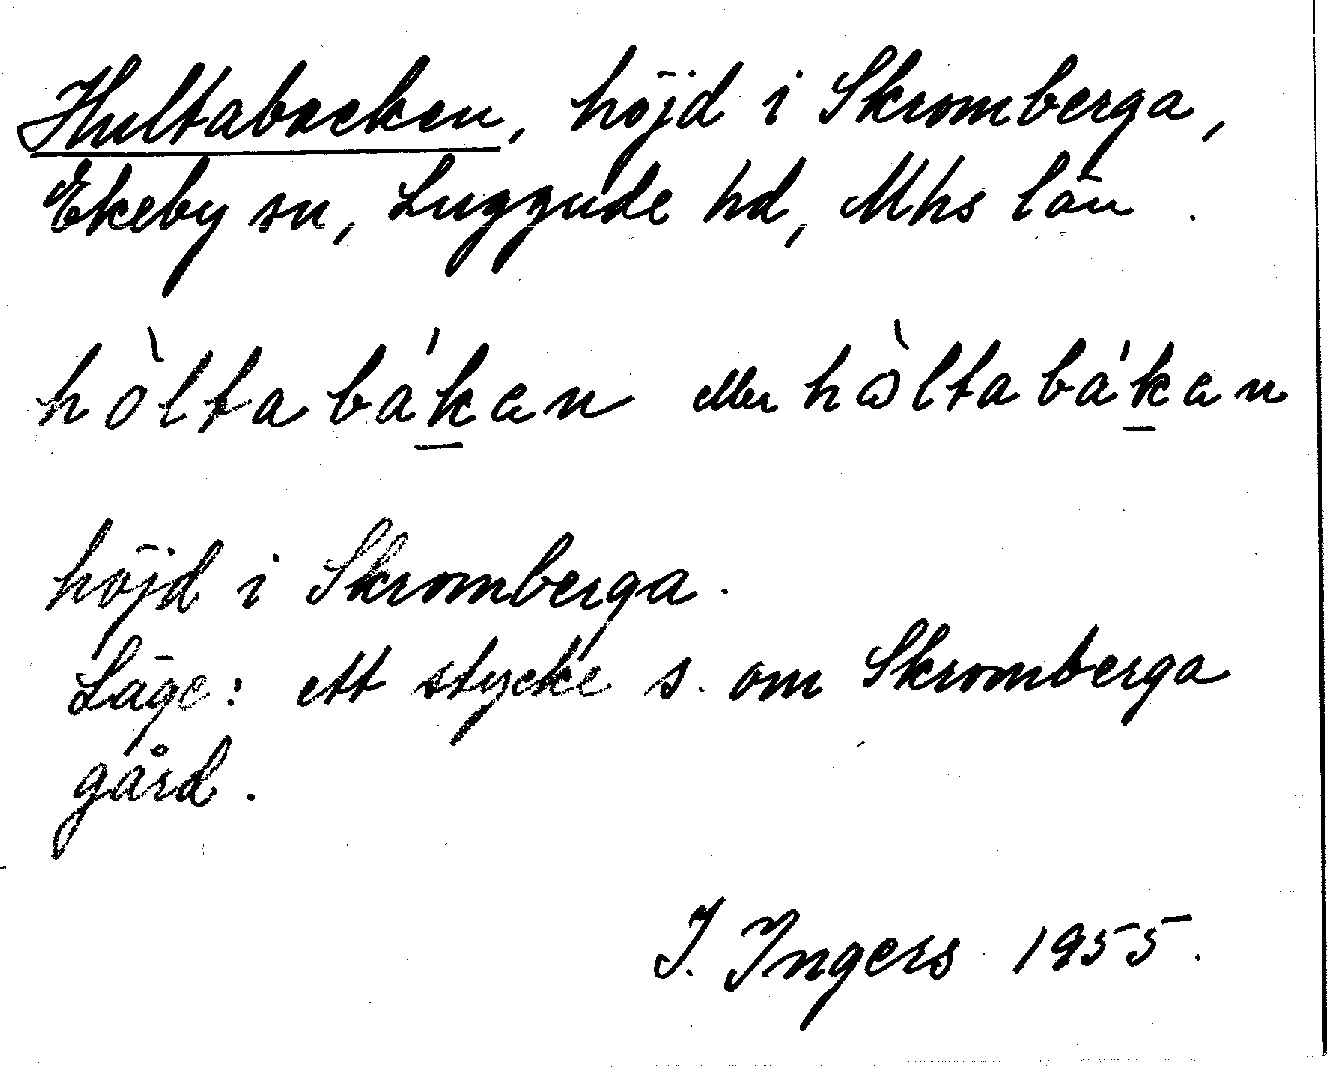 Hultabacken, höjd i Skromberga,
Ekeby sn, Luggude hd, Mhs län.
hòltabák̲an eller hὼltabák̲an
höjd i Skromberga.
Läge: ett stycke s. om Skromberga
gård.
I. Ingers 1955.